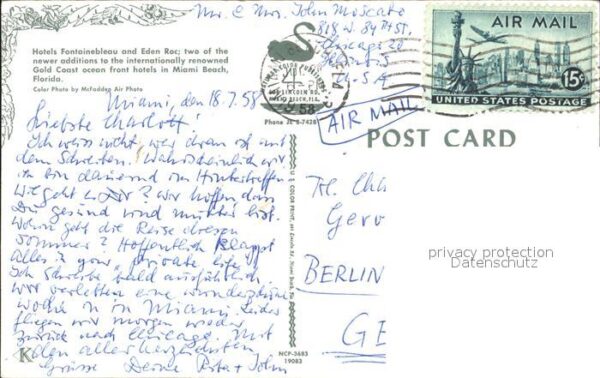 Mr. & Mrs. John Moscato
818 W. 84th St.
Chicago 20
U S A
Hotels Fontainebleau and Eden Roc; two of the
newer additions to the internationally renowned
Gold Coast ocean front hotels in Miami Beach,
Florida.
Color Photo by McFadden Air Photo
Phone JE 8-7428
AIR MAIL
15¢
UNITED STATES POSTAGE
AIR MAIL
POST CARD
Miami, den 18.7.58
Liebste Charlott!
Ich weiss nicht, wer dran ist mit
dem Schreiben. Wahrscheinlich wir
ich bin dauernd im Hintertreffen
Wie geht es Dir? Wir hoffen dass
Du gesund und munter bist.
Wohin geht die Reise diesen
Sommer? Hoffentlich klappt
alles in your private life.
Ich schreibe bald ausführlich.
Wir verlebten eine wunderschöne
Woche in Miami. Leider
fliegen wir morgen wieder
zurück nach Chicago. Mit
den allerherzlichsten
Grüsse Deine Rita + John
K
NCP-3683
19083
Cha
Gerv
BERLIN
GE
privacy protection
Datenschutz